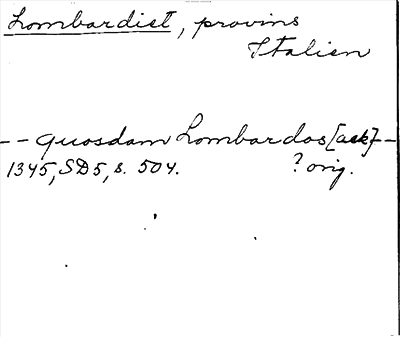 Lombardiet, provins
Italien
-- quosdam Lombardos [ack] --
1345, SD5, s. 504. ? orig.